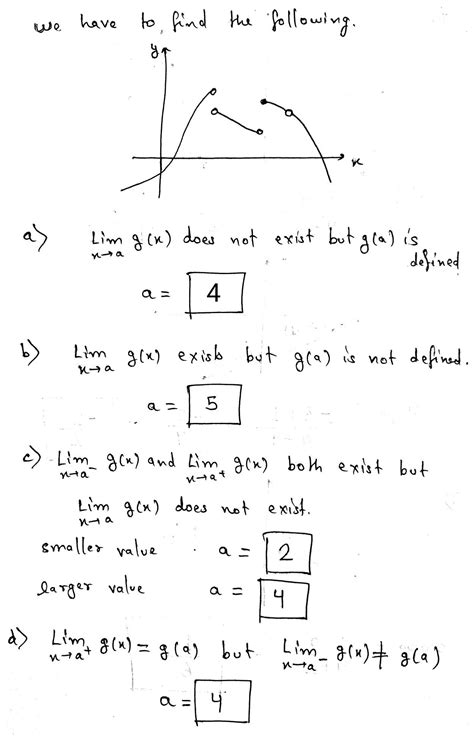 we have to find the following.
y
x
a) Lim g(x) does not exist but g(a) is
x→a defined
a = 4
b) Lim g(x) exists but g(a) is not defined.
x→a
a = 5
c) Lim g(x) and Lim g(x) both exist but
x→a- x→a+
Lim g(x) does not exist.
x→a
smaller value a = 2
larger value a = 4
d) Lim g(x) = g(a) but Lim g(x) ≠ g(a)
x→a+ x→a-
a = 4